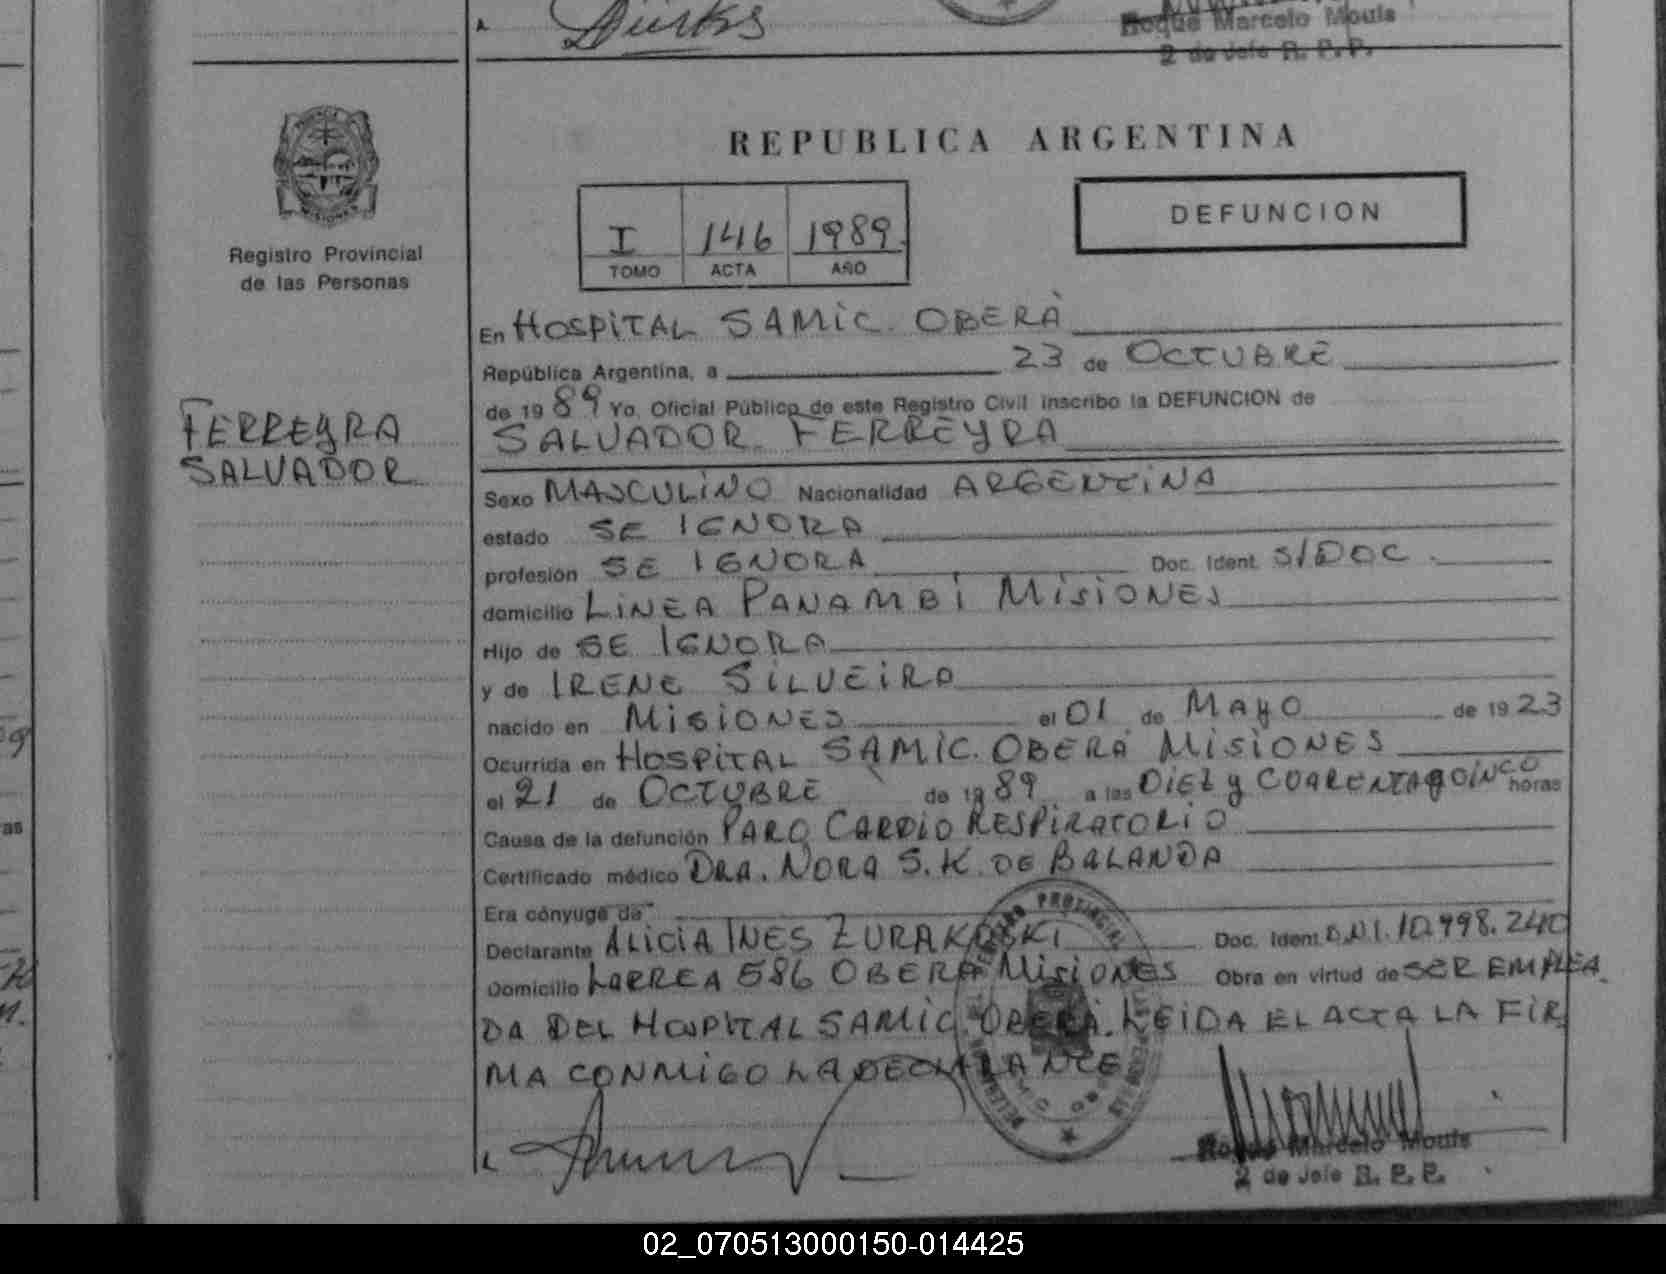 Roque Marcelo Mouis
2 do Jefe R. P. P.
REPUBLICA ARGENTINA
I 146 1989
TOMO ACTA AÑO
DEFUNCION
MISIONES
Registro Provincial
de las Personas
FERREYRA
SALVADOR
En HOSPITAL SAMIC. OBERÁ
República Argentina, a 23 de OCTUBRE
de 1989 Yo, Oficial Público de este Registro Civil inscribo la DEFUNCION de
SALVADOR FERREYRA
Sexo MASCULINO Nacionalidad ARGENTINA
estado SE IGNORA
profesión SE IGNORA Doc. Ident. S/DOC.
domicilio LINEA PANAMBI MISIONES
Hijo de SE IGNORA
y de IRENE SILVEIRA
nacido en MISIONES el 01 de MAYO de 1923
Ocurrida en HOSPITAL SAMIC. OBERÁ MISIONES
el 21 de OCTUBRE de 1989 a las DIEZ y CUARENTA CINCO horas
Causa de la defunción PARO CARDIO RESPIRATORIO
Certificado médico DRA. NORA S. K. DE BALANDA
Era cónyuge de
Declarante ALICIA INES ZURAKOSKI Doc. Ident. D.N.I. 10.998.240
Domicilio LARREA 586 OBERA MISIONES Obra en virtud de SER EMPLEA
DA DEL HOSPITAL SAMIC. OBERÁ. LEIDA EL ACTA LA FIR
MA CONMIGO LA DECLARANTE
Roque Marcelo Mouis
2 do Jefe R. P. P.
02_070513000150-014425